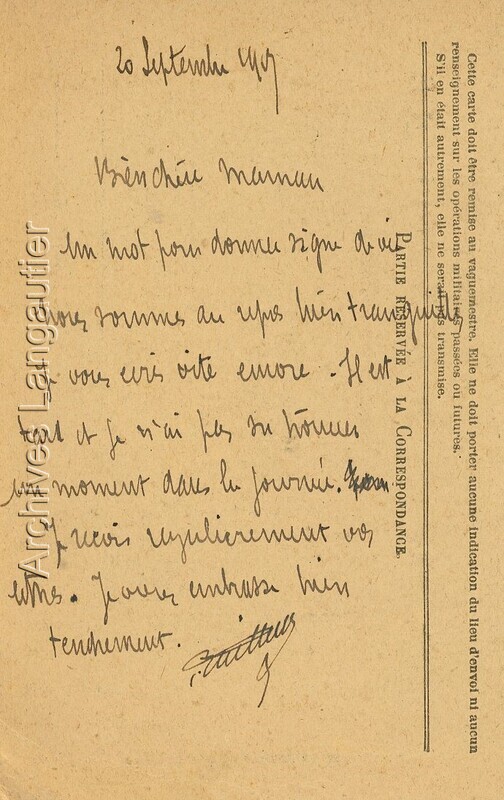 20 Septembre 191
Bien chère Maman
Un mot pour donner signe de vie
nous sommes au repos bien tranquilles
Je vous ecris vite encore. Il est
tard et je n'ai pas su trouver
un moment dans la journée.
Je recois regulierement vos
lettres. Je vous embrasse bien
tendrement.
PARTIE RÉSERVÉE À LA CORRESPONDANCE.
Cette carte doit être remise au vaguemestre. Elle ne doit porter aucune indication du lieu d'envoi ni aucun
renseignement sur les opérations militaires passées ou futures.
S'il en était autrement, elle ne serait pas transmise.
Archives Langautier